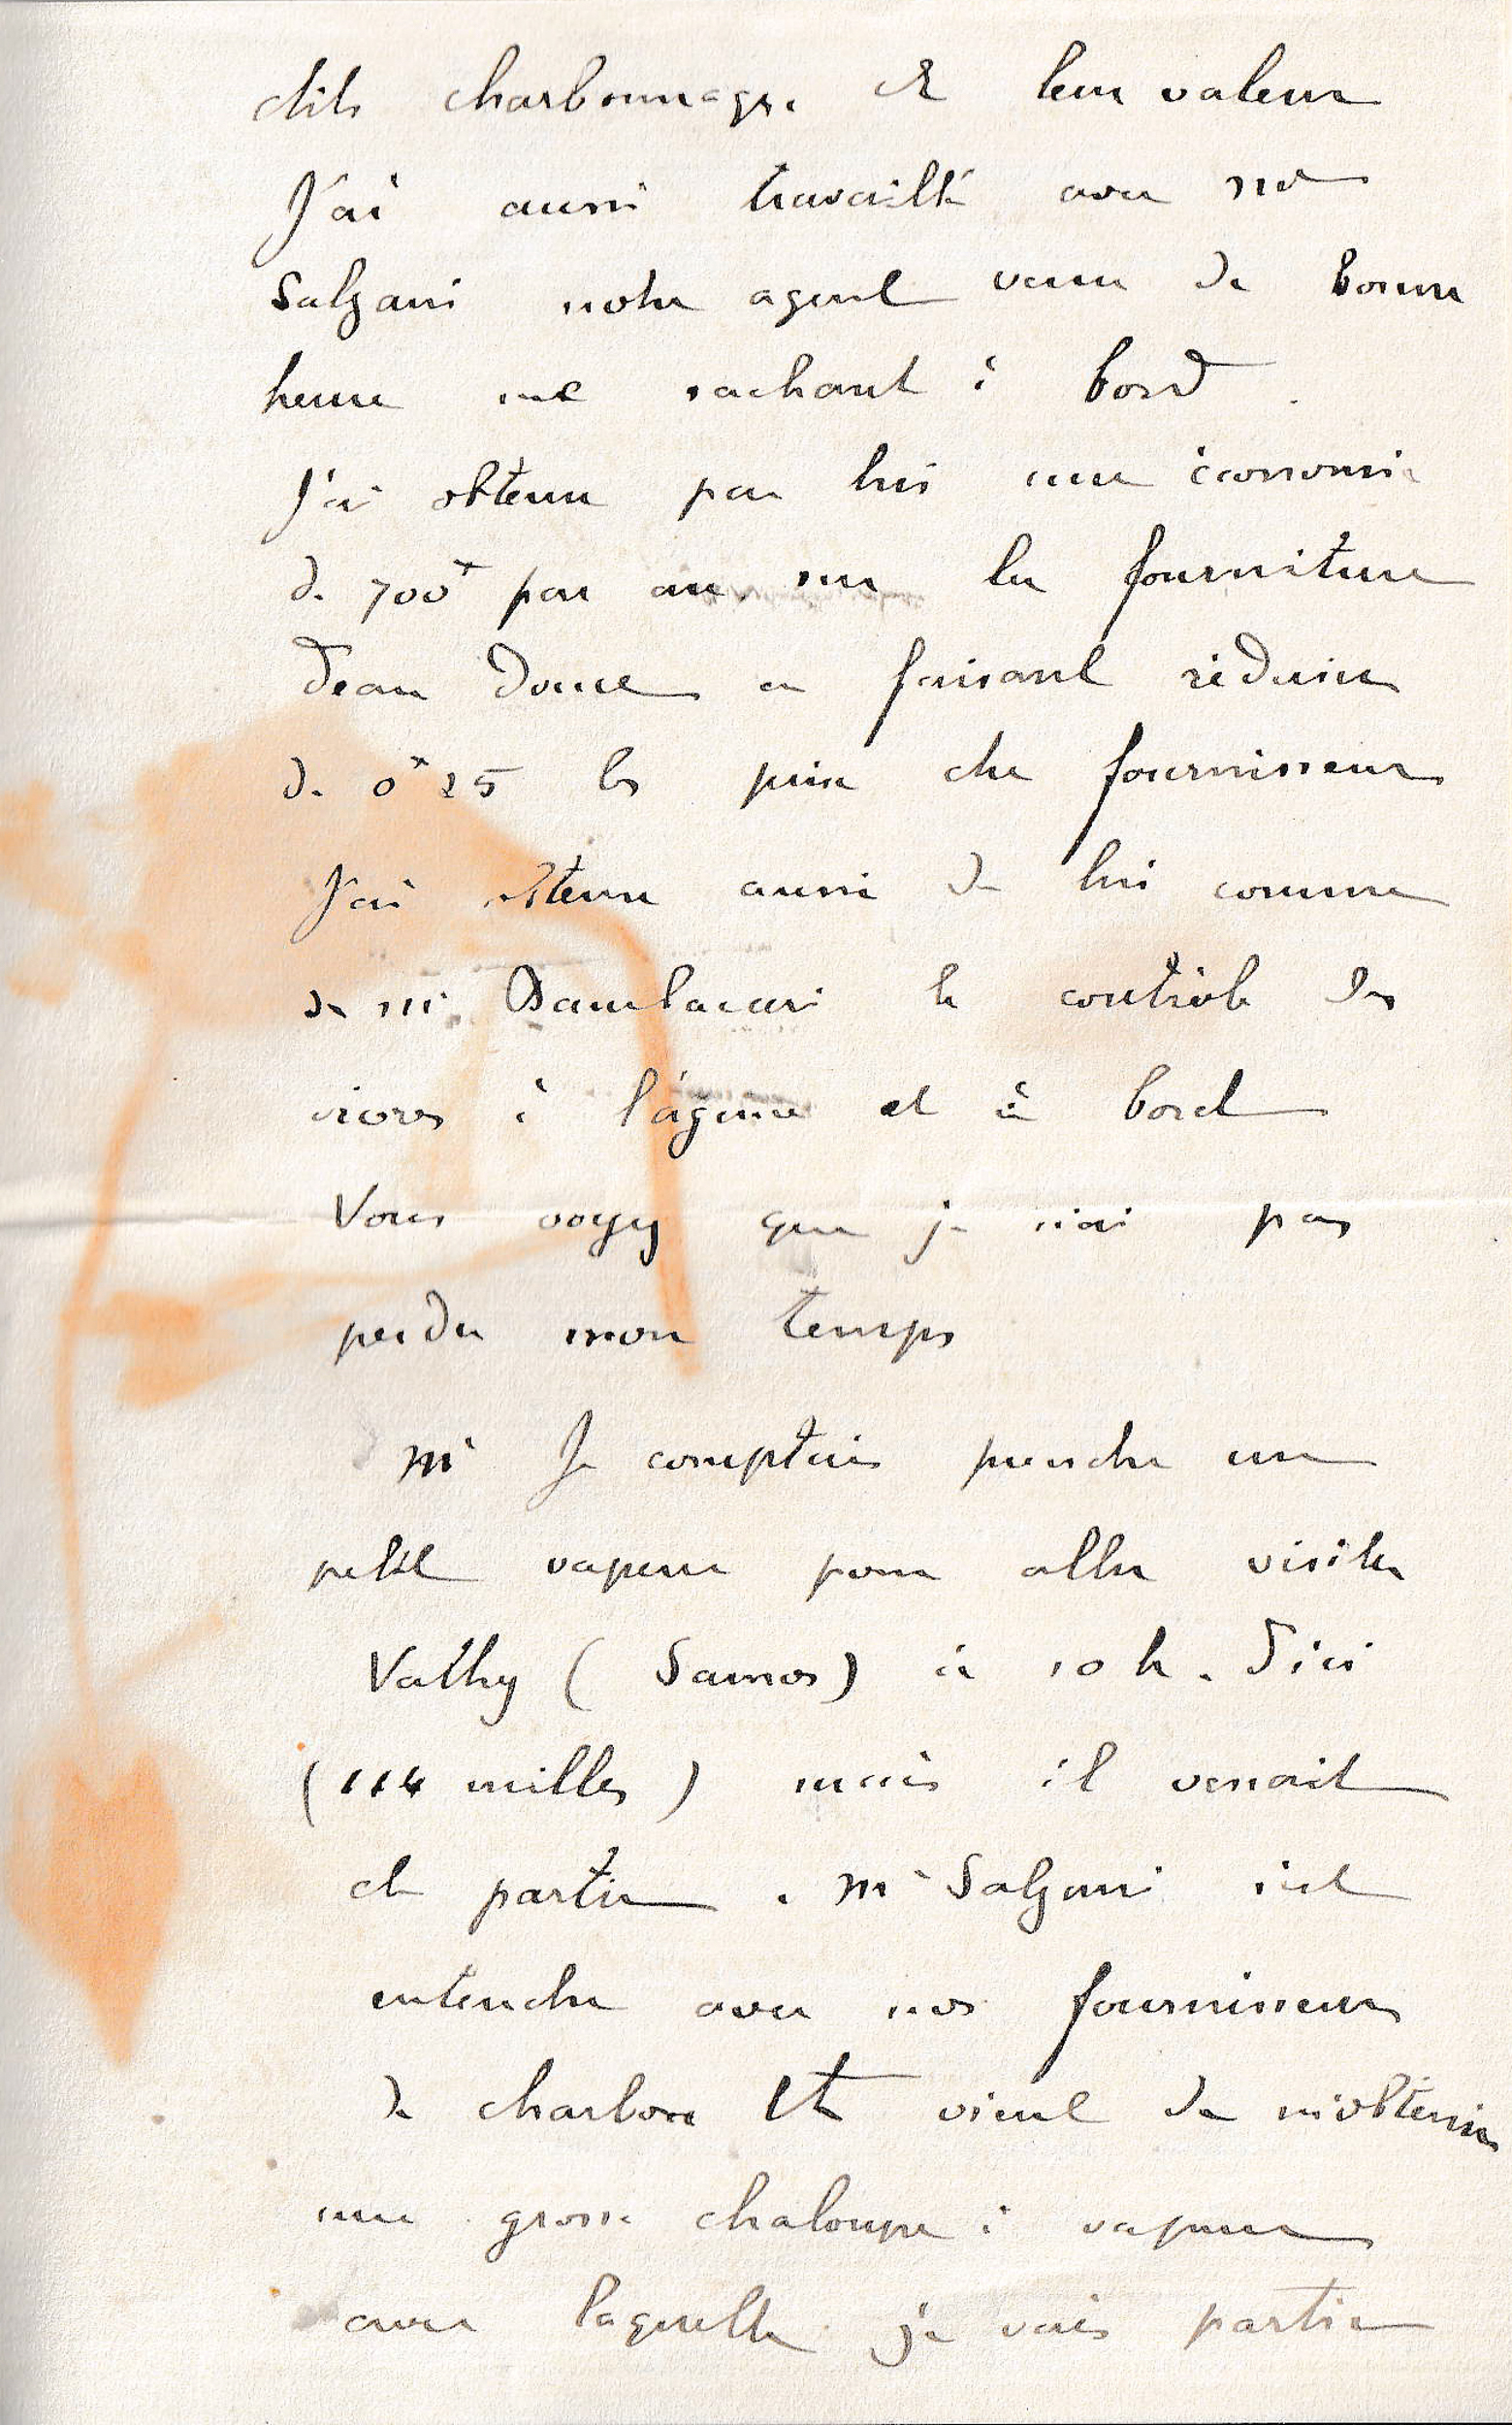 dits charbonnages et leur valeur
J'ai aussi travaillé avec Mr
Salzani notre agent venu de bonne
heure me sachant à bord.
J'ai obtenu par lui une économie
de 700f par an sur la fourniture
d'eau douce en faisant réduire
de 0f25 les prix du fournisseur
J'ai obtenu aussi de lui comme
de Mr le contrôle des
vivres à l'agence et à bord
Vous voyez que je n'ai pas
perdu mon temps
Mr Je comptais prendre un
petit vapeur pour aller visiter
Vathy (Samos) à 10 h. d'ici
(114 milles) mais il venait
de partir. Mr Salzani s'est
entendu avec nos fournisseurs
de charbon et vient de m'obtenir
une grosse chaloupe à vapeur
avec laquelle je vais partir